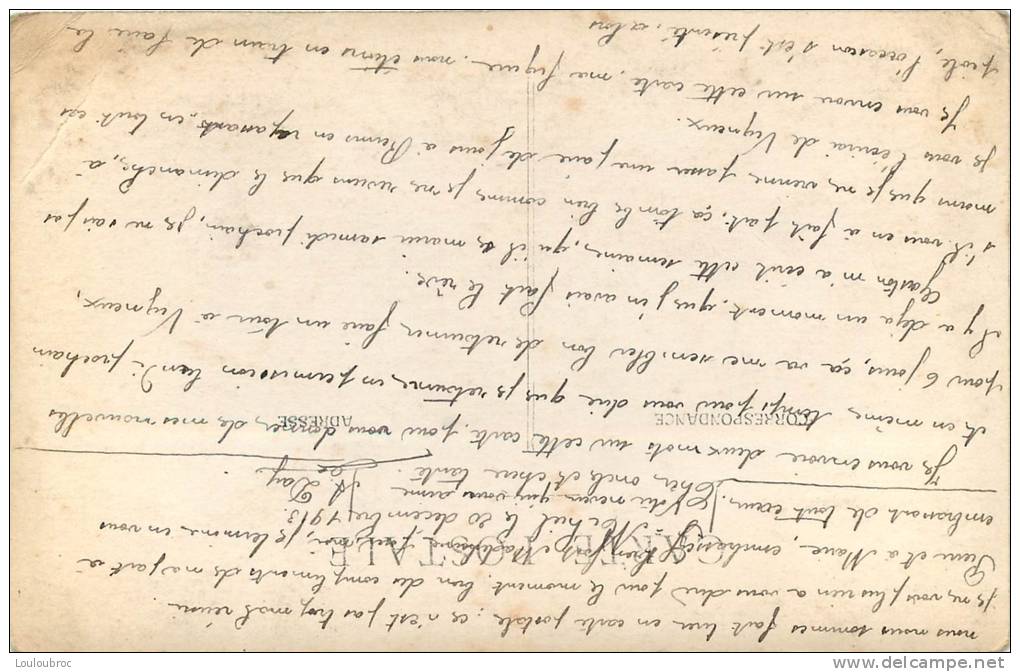 St Michel le 20 décembre 1913.
Cher oncle et chère tante.
Je vous envoie deux mots sur cette carte, pour vous donner, de mes nouvelles
et en même temps pour vous dire que je retourne, en permission lundi prochain
pour 6 jours, ça va me sembler bon de retourner, faire un tour à Vigneux,
il y a déjà un moment, que j'en avais fait le rêve.
Gaston m'a écrit cette semaine, qu'il se marie samedi prochain, je ne sais pas
s'il vous en a fait part, ça tombe bien comme, je ne reviens que le dimanche, à
moins que je ne, vienne passer une paire de jours à Reims en repassant, en tout cas
je vous l'écrirai de Vigneux.
Je vous envoie sur cette carte, ma figure. nous étions en train de faire le
piole, l'occasion s'est présenté, alors
nous nous sommes fait tirer en carte postale. ce n'est pas trop mal réussi
je ne, vois plus rien a vous dire pour le moment bien des compliments de ma part à
Pierre et a Marie, embrassez bien fort Madeleine pour, moi, je termine en vous
embrassant de tout cœur,
Votre neveu qui vous aime
CARTE POSTALE
CORRESPONDANCE
ADRESSE
Louloubroc
www.delcampe.net